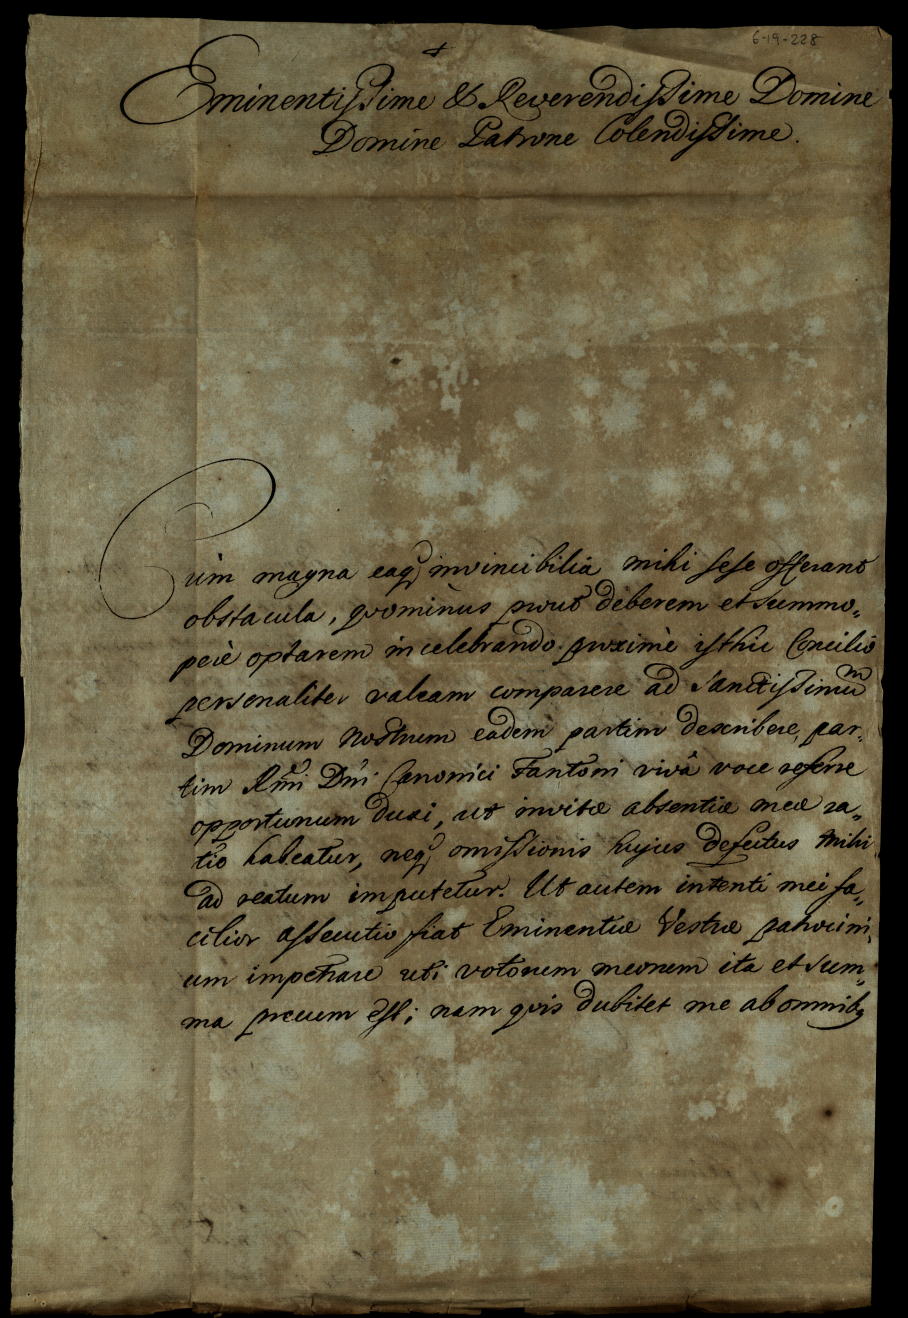 6-19-228
Eminentissime & Reverendissime Domine
Domine Patrone Colendissime.
Cùm magna eaq; invincibilia mihi sese offerant
obstacula, quominùs prout deberem et summo„
perè optarem in celebrando proximè isthic Concilio
personaliter valeam comparere ad Sanctissimũ
Dominum Nostrum eadem partim describere, par„
tim Rm̃i Dñi Canonici Fantoni vivâ voce referre
opportunum duxi, ut invitæ absentiæ meæ ra„
tio habeatur, neq; omissionis hujus defectus mihi
ad reatum imputetur. Ut autem intenti mei fa„
cilior assecutio fiat Eminentiæ Vestræ patrocini„
um impetrare uti votorum meorum ita et sum„
ma precum est; nam quis dubitet me ab omnib;